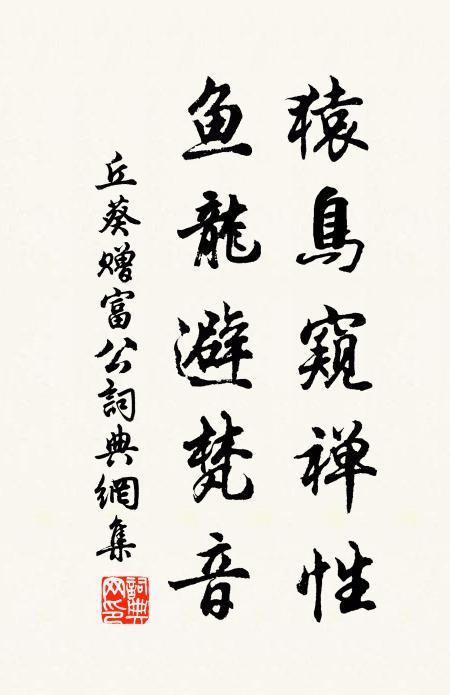 猿鳥窺禅性
魚龍避梵音
丘葵贈富公詞典網集
詞典網印